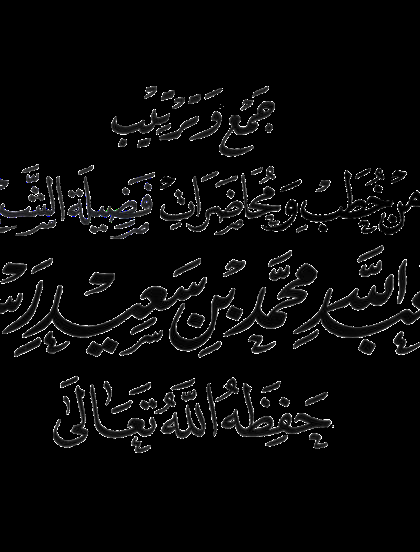 جَمْعُ وَتَرْتِيْبُ
مِنْ خُطَبِ وَمُحَاضَرَاتِ فَضِيلَةِ الشَّيْ
اللهِ مُحَمَّدِ بْنِ سَعِيدٍ رَسْ
حَفِظَهُ اللَّهُ تَعَالَى